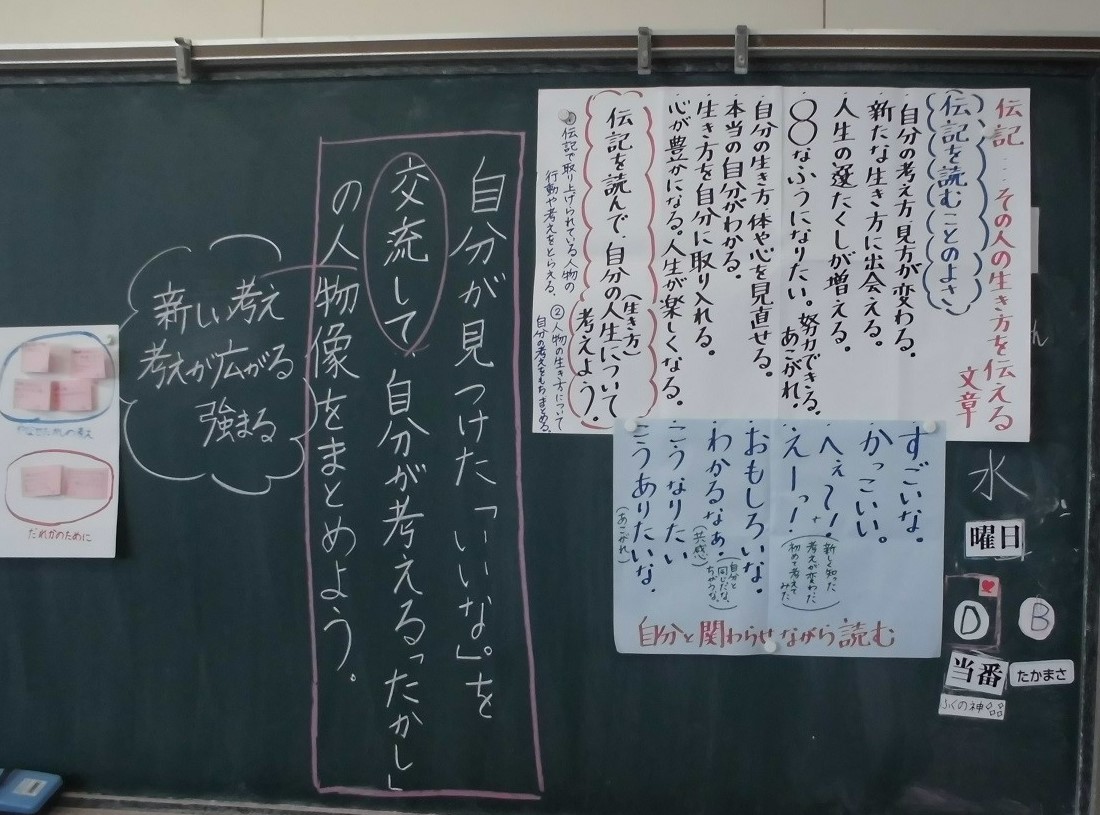 伝記…その人の生き方を伝える文章
伝記を読むことのよさ
・自分の考え方見方が変わる。
・新たな生き方に出会える。
・人生の選たくしが増える。
・○○なふうになりたい。努力できる。あこがれ。
・自分の生き方、体や心を見直せる。
・本当の自分がわかる。
・生き方を自分に取り入れる。
・心が豊かになる。人生が楽しくなる。
伝記を読んで、自分の人生について(生き方)考えよう。
①伝記で取り上げられている人物の
行動や考えをとらえる。
②人物の生き方について
自分の考えをもちまとめる。
・すごいな。
・かっこいい。
・へぇ〜!
・えーっ!
(新しく知った
考えが変わった
初めて考えてみた)
・おもしろいな。
・わかるなぁ。
(共感)
(自分と
同じだな、
ちがうな。)
・こうなりたい
・こうありたいな。
(あこがれ)
自分と関わらせながら読む
水
曜日
D
B
当番
たかまさ
ふくの神
自分が見つけた「いいな」。を
交流して、自分が考える「たかし」
の人物像をまとめよう。
新しい考え
考えが広がる
強まる
だれかのために